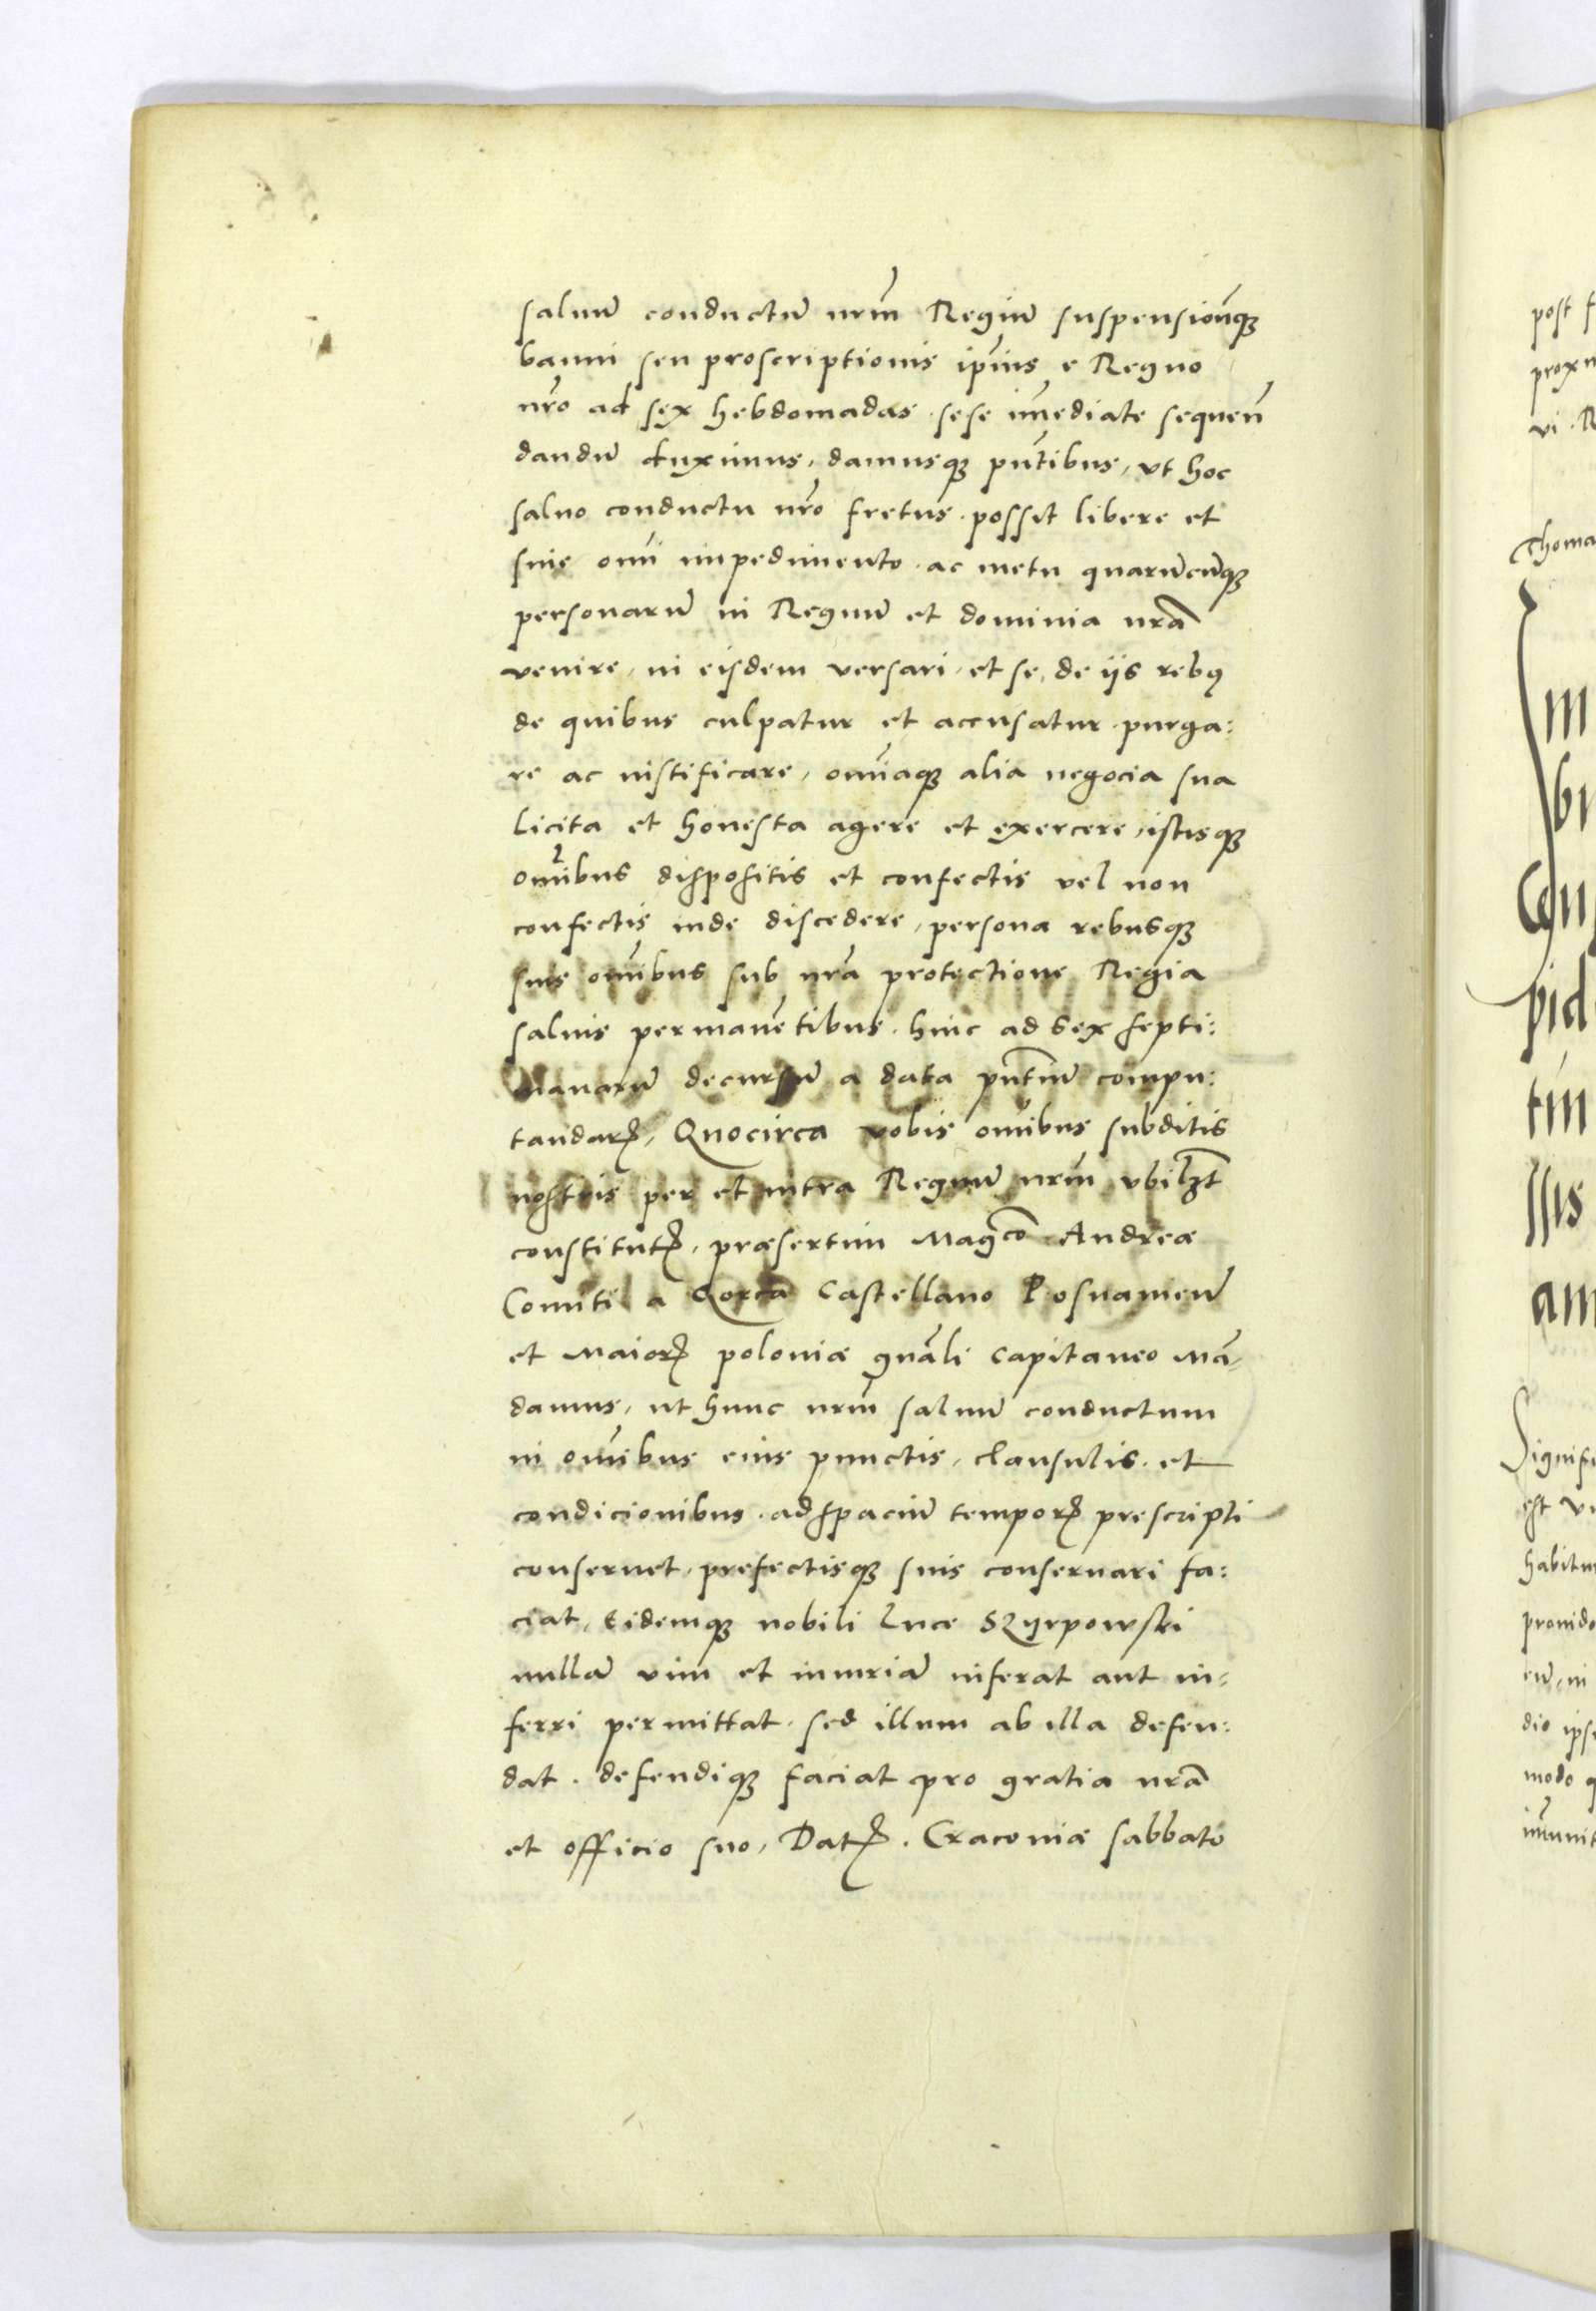 saluū conductū nrm̄ Regiū suspensionēq;
banni seu proscriptionis ipius e Regno
nro ad sex hebdomadas sese imediate sequen̄
dandū duximus, damusq; pntibus, vt hoc
saluo conductu nro fretus possit libere et
sine omni impedimento ac metu quarūcūq;
personarū in Regnū et dominia nrā
venire, in eisdem versari, et se, de iis rebꝯ
de quibus culpatur et accusatur purga:
re ac iustificare, omniaq; alia negocia sua
licita et honesta agere et exercere, istisq;
omībus dispositis et confectis vel non
confectis inde discedere, persona rebusq;
suis omībus sub nrā protectione Regia
saluis permanētibus. hinc ad sex septi:
manarū decursū a data pntiū compu:
tandarꝝ, Quocirca vobis omībus subditis
nostris per et intra Regnū nrm̄ vbilꝫt
constitutꝭ, præsertim Magco Andreæ
Comiti a Gorca Castellano Posnanien̄
et Maiorꝭ poloniæ gnāli Capitaneo Mā,
damus, ut hunc nrm̄ saluū conductum
in omībus eius punctis, clausulis et
condicionibus ad spaciū temporꝭ prescripti
conseruet, prefectisq; suis conseruari fa:
ciat, Eidemq; nobili Luce Szyrpowski
nullā vim et iniuriā inferat aut in,
ferri permittat, sed illum ab illa defen:
dat. defendiq; faciat pro gratia nrā
et officio suo, Datꝭ. Cracouiæ sabbato
post
vi